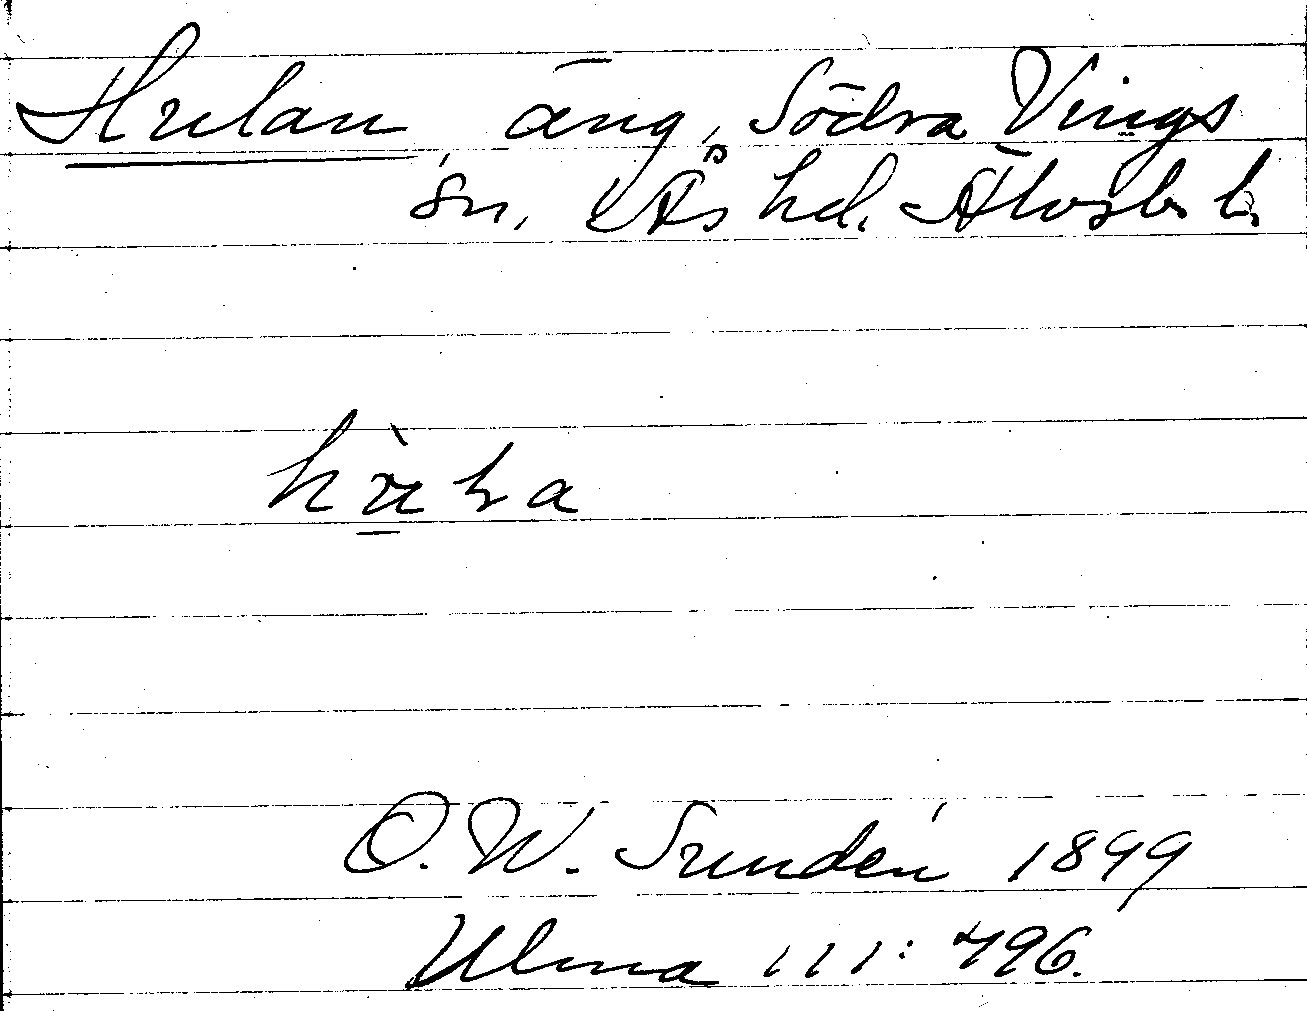 Hulan äng, Södra Vings
sn. Ås hd. Älvsb. l.
O. W. Sundén 1899
Ulma 111:796.